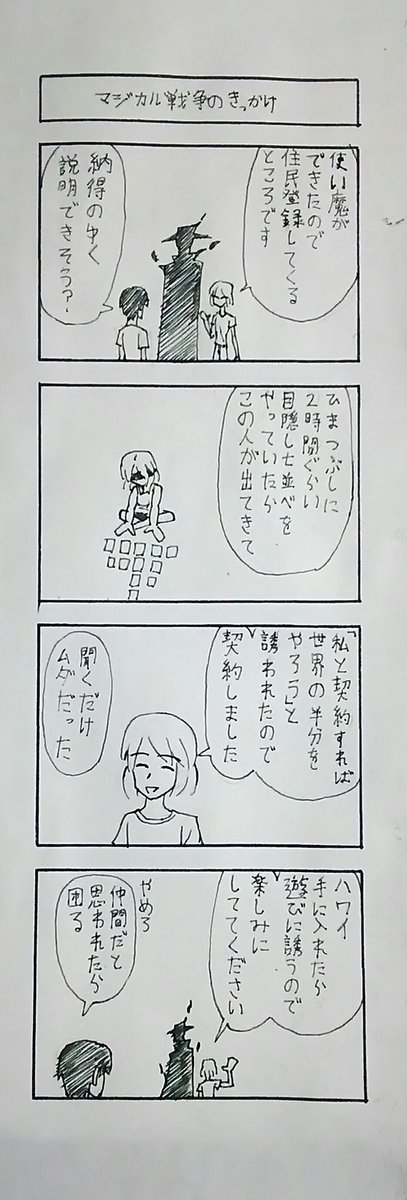 マジカル戦争のきっかけ
使い魔が
できたので
住民登録してくる
ところです
納得のゆく
説明できそう？
ひまつぶしに
2時間ぐらい
目隠し七並べを
やっていたら
この人が出てきて
「私と契約すれば
世界の半分を
やろう」と
誘われたので
契約しました
聞くだけ
ムダだった
ハワイ
手に入れたら
遊びに誘うので
楽しみに
しててください
やめろ
仲間だと
思われたら
困る